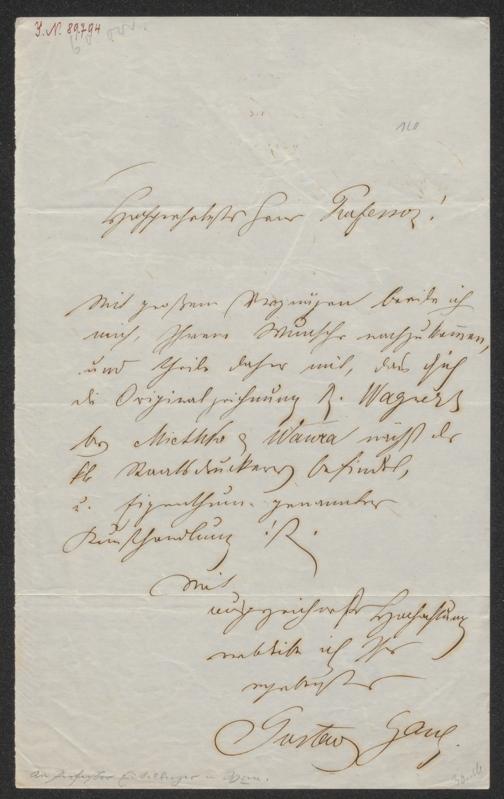 I. N. 89.794
160
Hochgeehrtester Herr Professor!
Mit großem Vergnügen beeile ich
mich, Ihrem Wunsche nachzukommen,
und theile daher mit, daß sich
die Originalzeichnung R. Wagners
bei Miethke & Wawra nächst der
kk Staatsdruckerey befindet,
u. Eigenthum genannter
Kunsthandlung ist.
Mit
ausgezeichneter Hochachtung
verbleibe ich Ihr
ergebenster
Gustav Gaul.
An Professor Eitelberger in Wien.